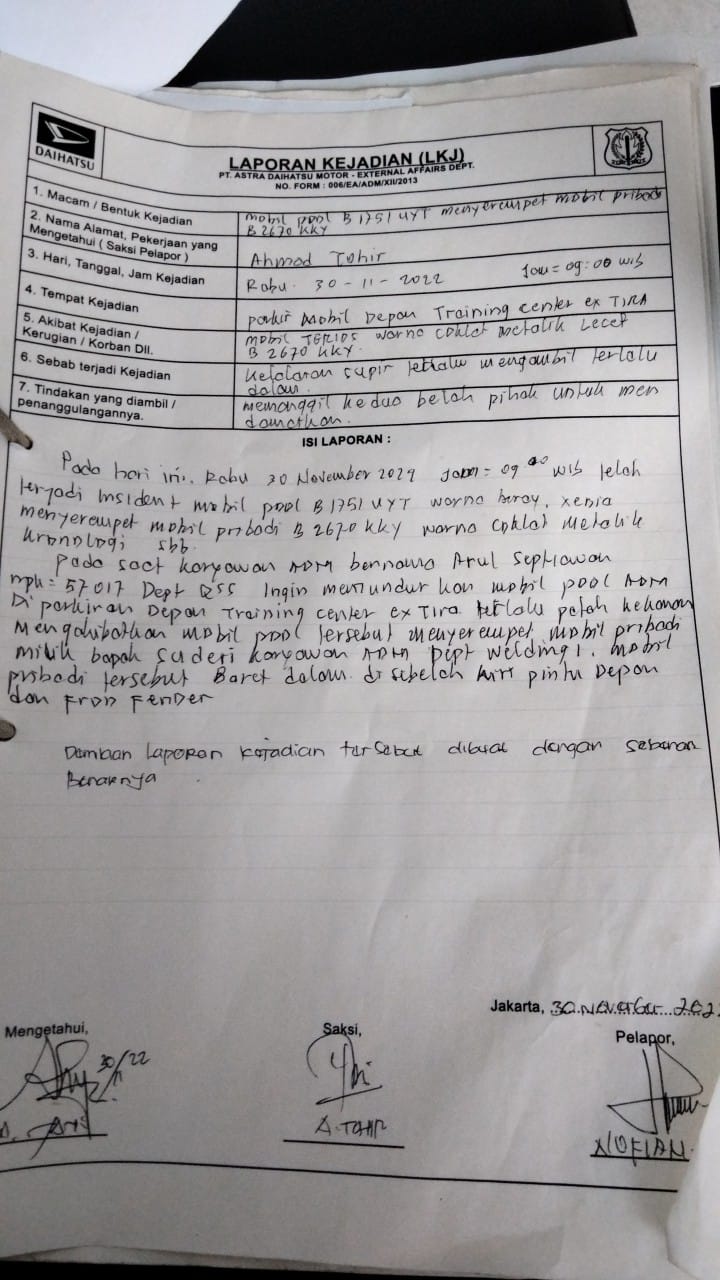 DAIHATSU
LAPORAN KEJADIAN (LKJ)
PT. ASTRA DAIHATSU MOTOR - EXTERNAL AFFAIRS DEPT.
NO. FORM : 006/EA/ADM/XII/2013
1. Macam / Bentuk Kejadian
mobil pool B 1751 UYT menyerempet mobil pribadi
B 2670 KKY
2. Nama Alamat, Pekerjaan yang
Mengetahui ( Saksi Pelapor )
Ahmad Tohir
3. Hari, Tanggal, Jam Kejadian
Rabu. 30 - 11 - 2022 Jam = 09:00 wib
4. Tempat Kejadian
parkir Mobil Depan Training center ex TIRA
5. Akibat Kejadian /
Kerugian / Korban Dll.
mobil TERIOS warna coklat metalik Lecet
B 2670 KKY.
6. Sebab terjadi Kejadian
Kelalaian supir mengambil terlalu
dalam.
7. Tindakan yang diambil /
penanggulangannya.
memanggil kedua belah pihak untuk men
damaikan.
ISI LAPORAN :
Pada hari ini. Rabu 30 November 2022 Jam = 09 00 wib telah
terjadi insident mobil pool B 1751 UYT warna, xenia
menyerempet mobil pribadi B 2670 KKY warna coklat Metalik
kronologi sbb.
Pada saat karyawan ADM bernama Arul Septiawan
npk = 57017 Dept QSS Ingin memundurkan mobil pool ADM
Di parkiran Depan Training center ex Tira terlalu patah kekanan
Mengakibatkan mobil pool tersebut menyerempet mobil pribadi
milik bapak Suderi karyawan ADM Dept Welding 1. mobil
pribadi tersebut Baret dalam di sebelah kiri pintu Depan
dan Fron Fender
Demian Laporan kejadian tersebut dibuat dengan sebenar
Benarnya.
Jakarta, 30 November 202
Mengetahui,
Saksi,
Pelapor,
30/22
A. TOHIR
NOFIAN.